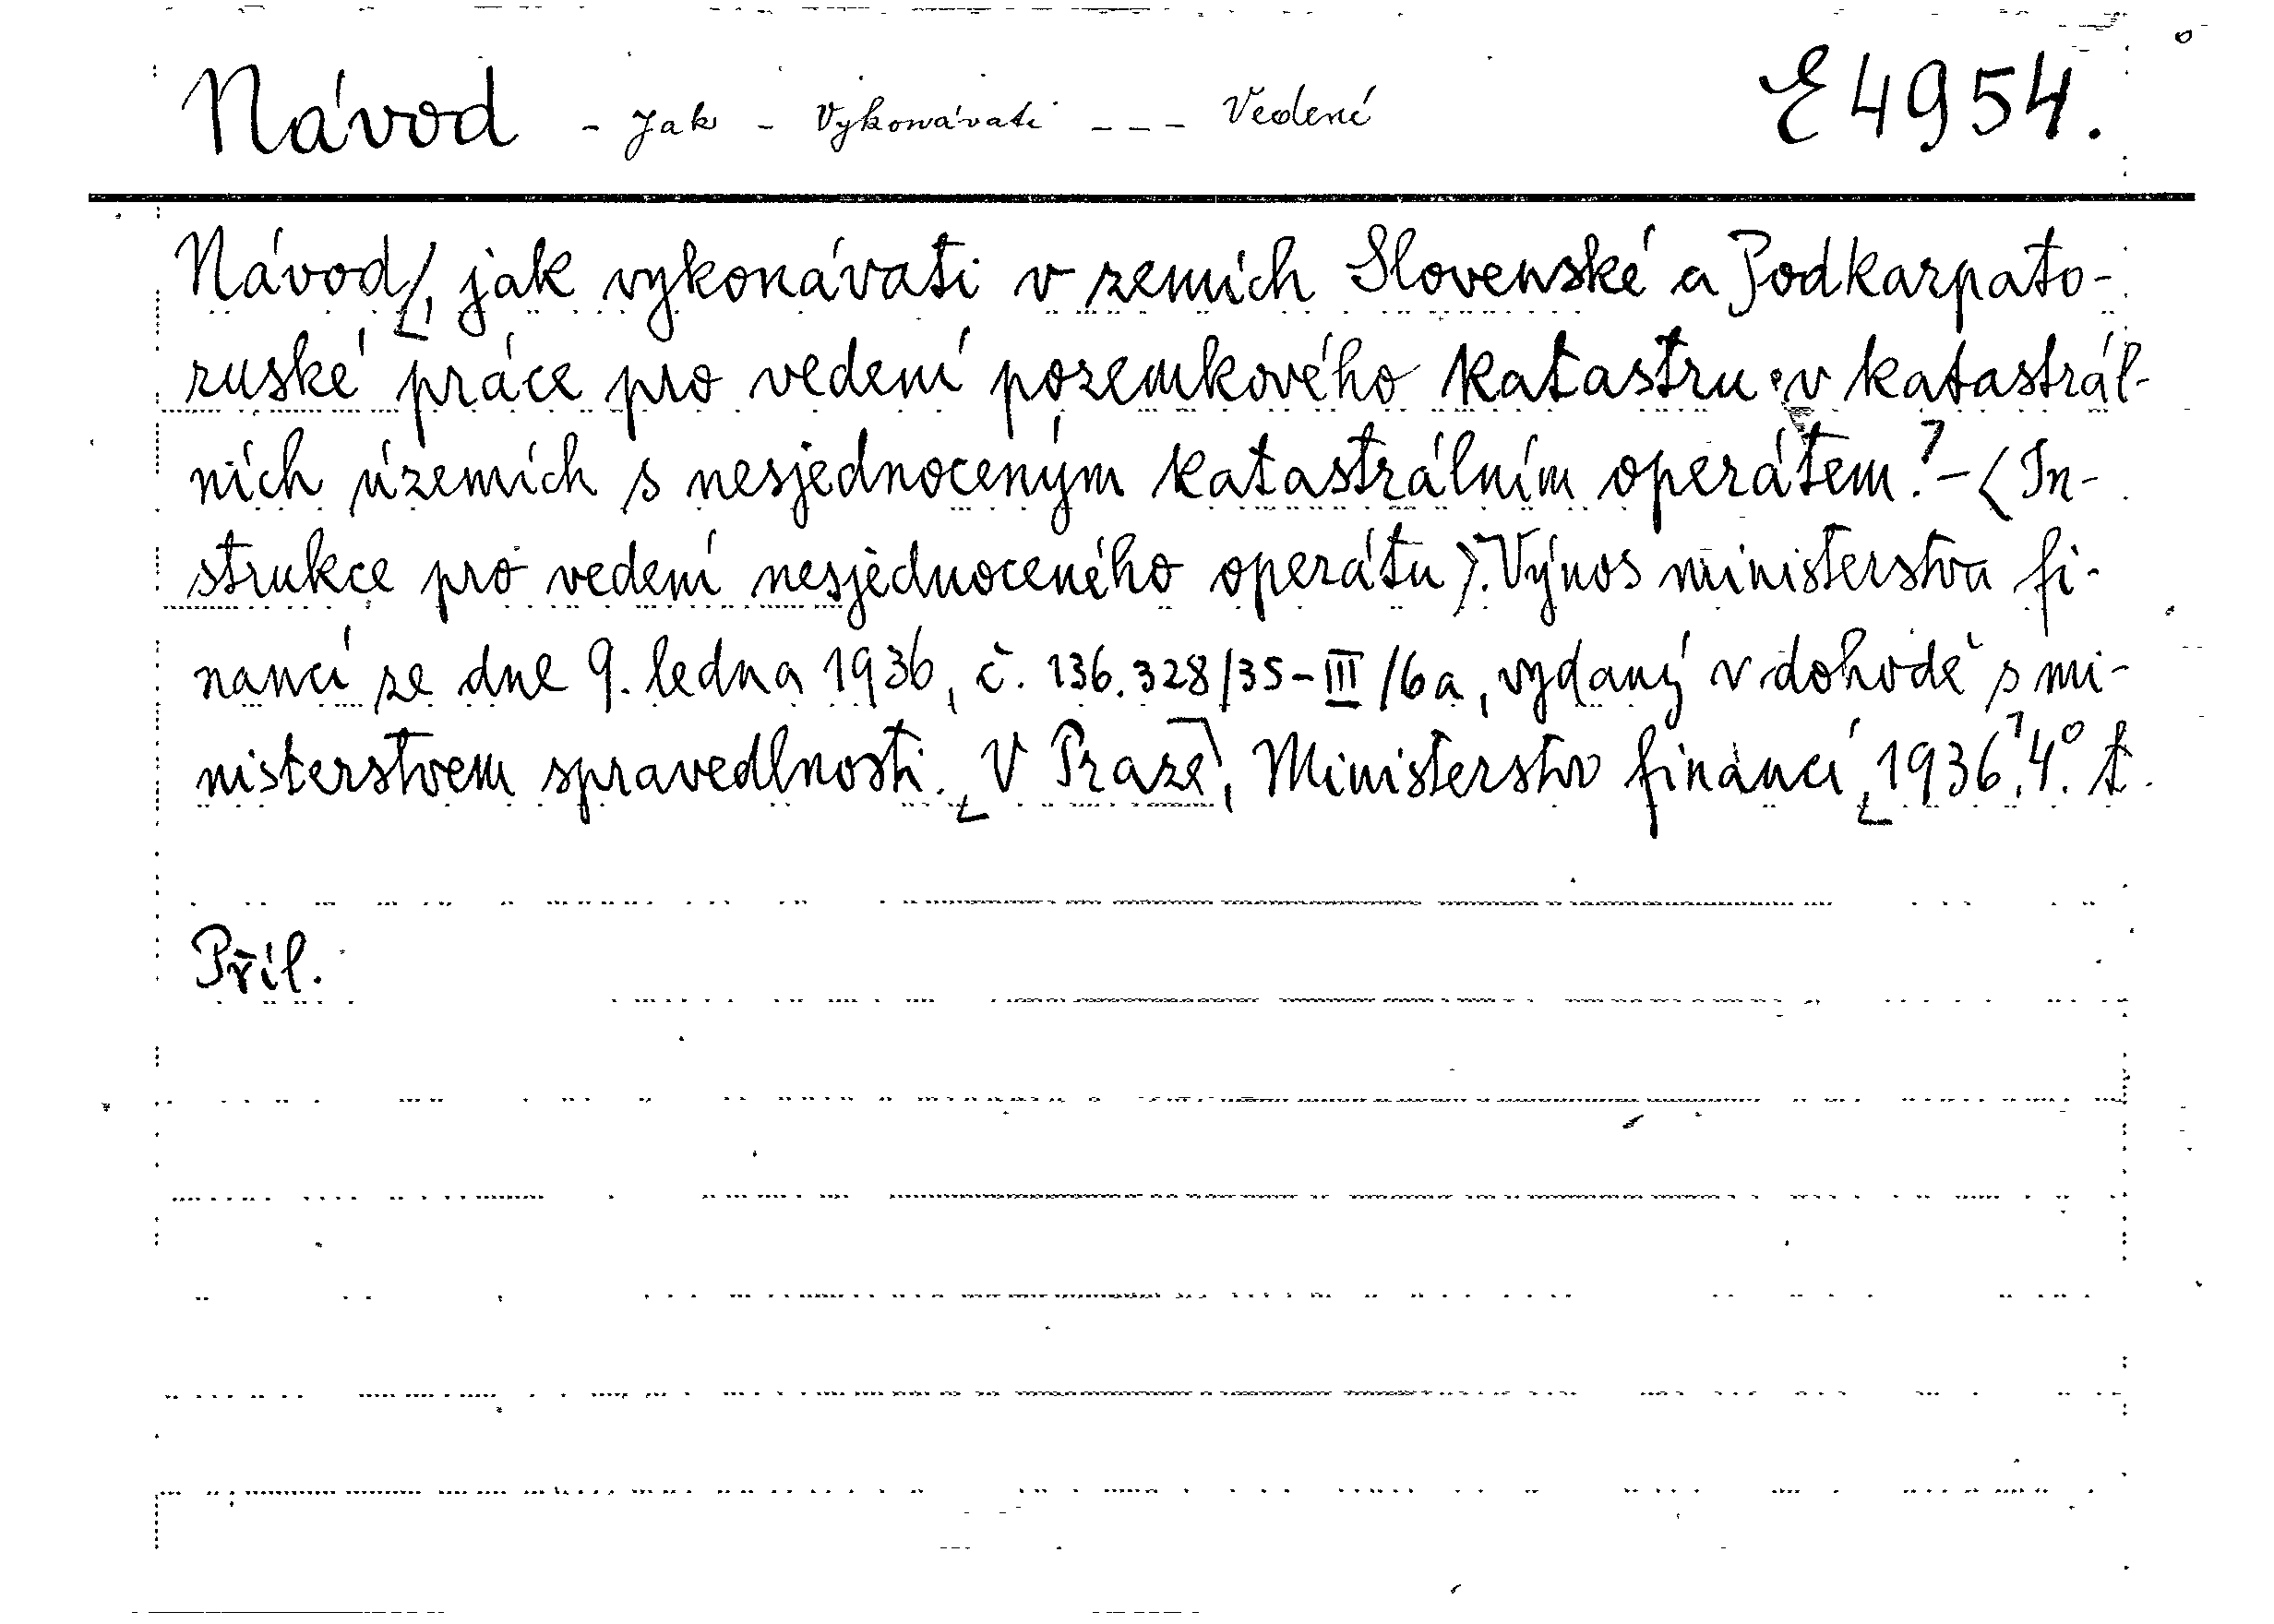 Návod - Jak - Vykonávati - - - Vedení E 4954.
Návod, jak vykonávati v zemích Slovenské a Podkarpato-
ruské práce pro vedení pozemkového katastru v katastrál-
ních územích s nesjednoceným katastrálním operátem. - (In-
strukce pro vedení nesjednoceného operátu). Výnos ministerstva fi-
nancí ze dne 9. ledna 1936, č. 136.328/35-III/6a, vydaný v dohodě s mi-
nisterstvem spravedlnosti. V Praze, Ministerstvo financí, 1936. 4°. t.
Příl.